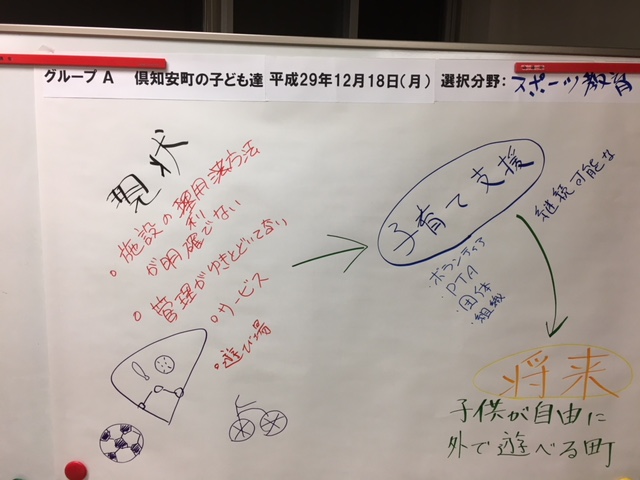 グループ A 倶知安町の子ども達 平成29年12月18日(月) 選択分野:スポーツ教育
現状
・施設の利用方法
が明確でない
・管理がゆきとどいてない
・サービス
・遊び場
子育て支援
・ボランティア
・PTA
・団体
・組織
継続可能な
将来
子供が自由に
外で遊べる町